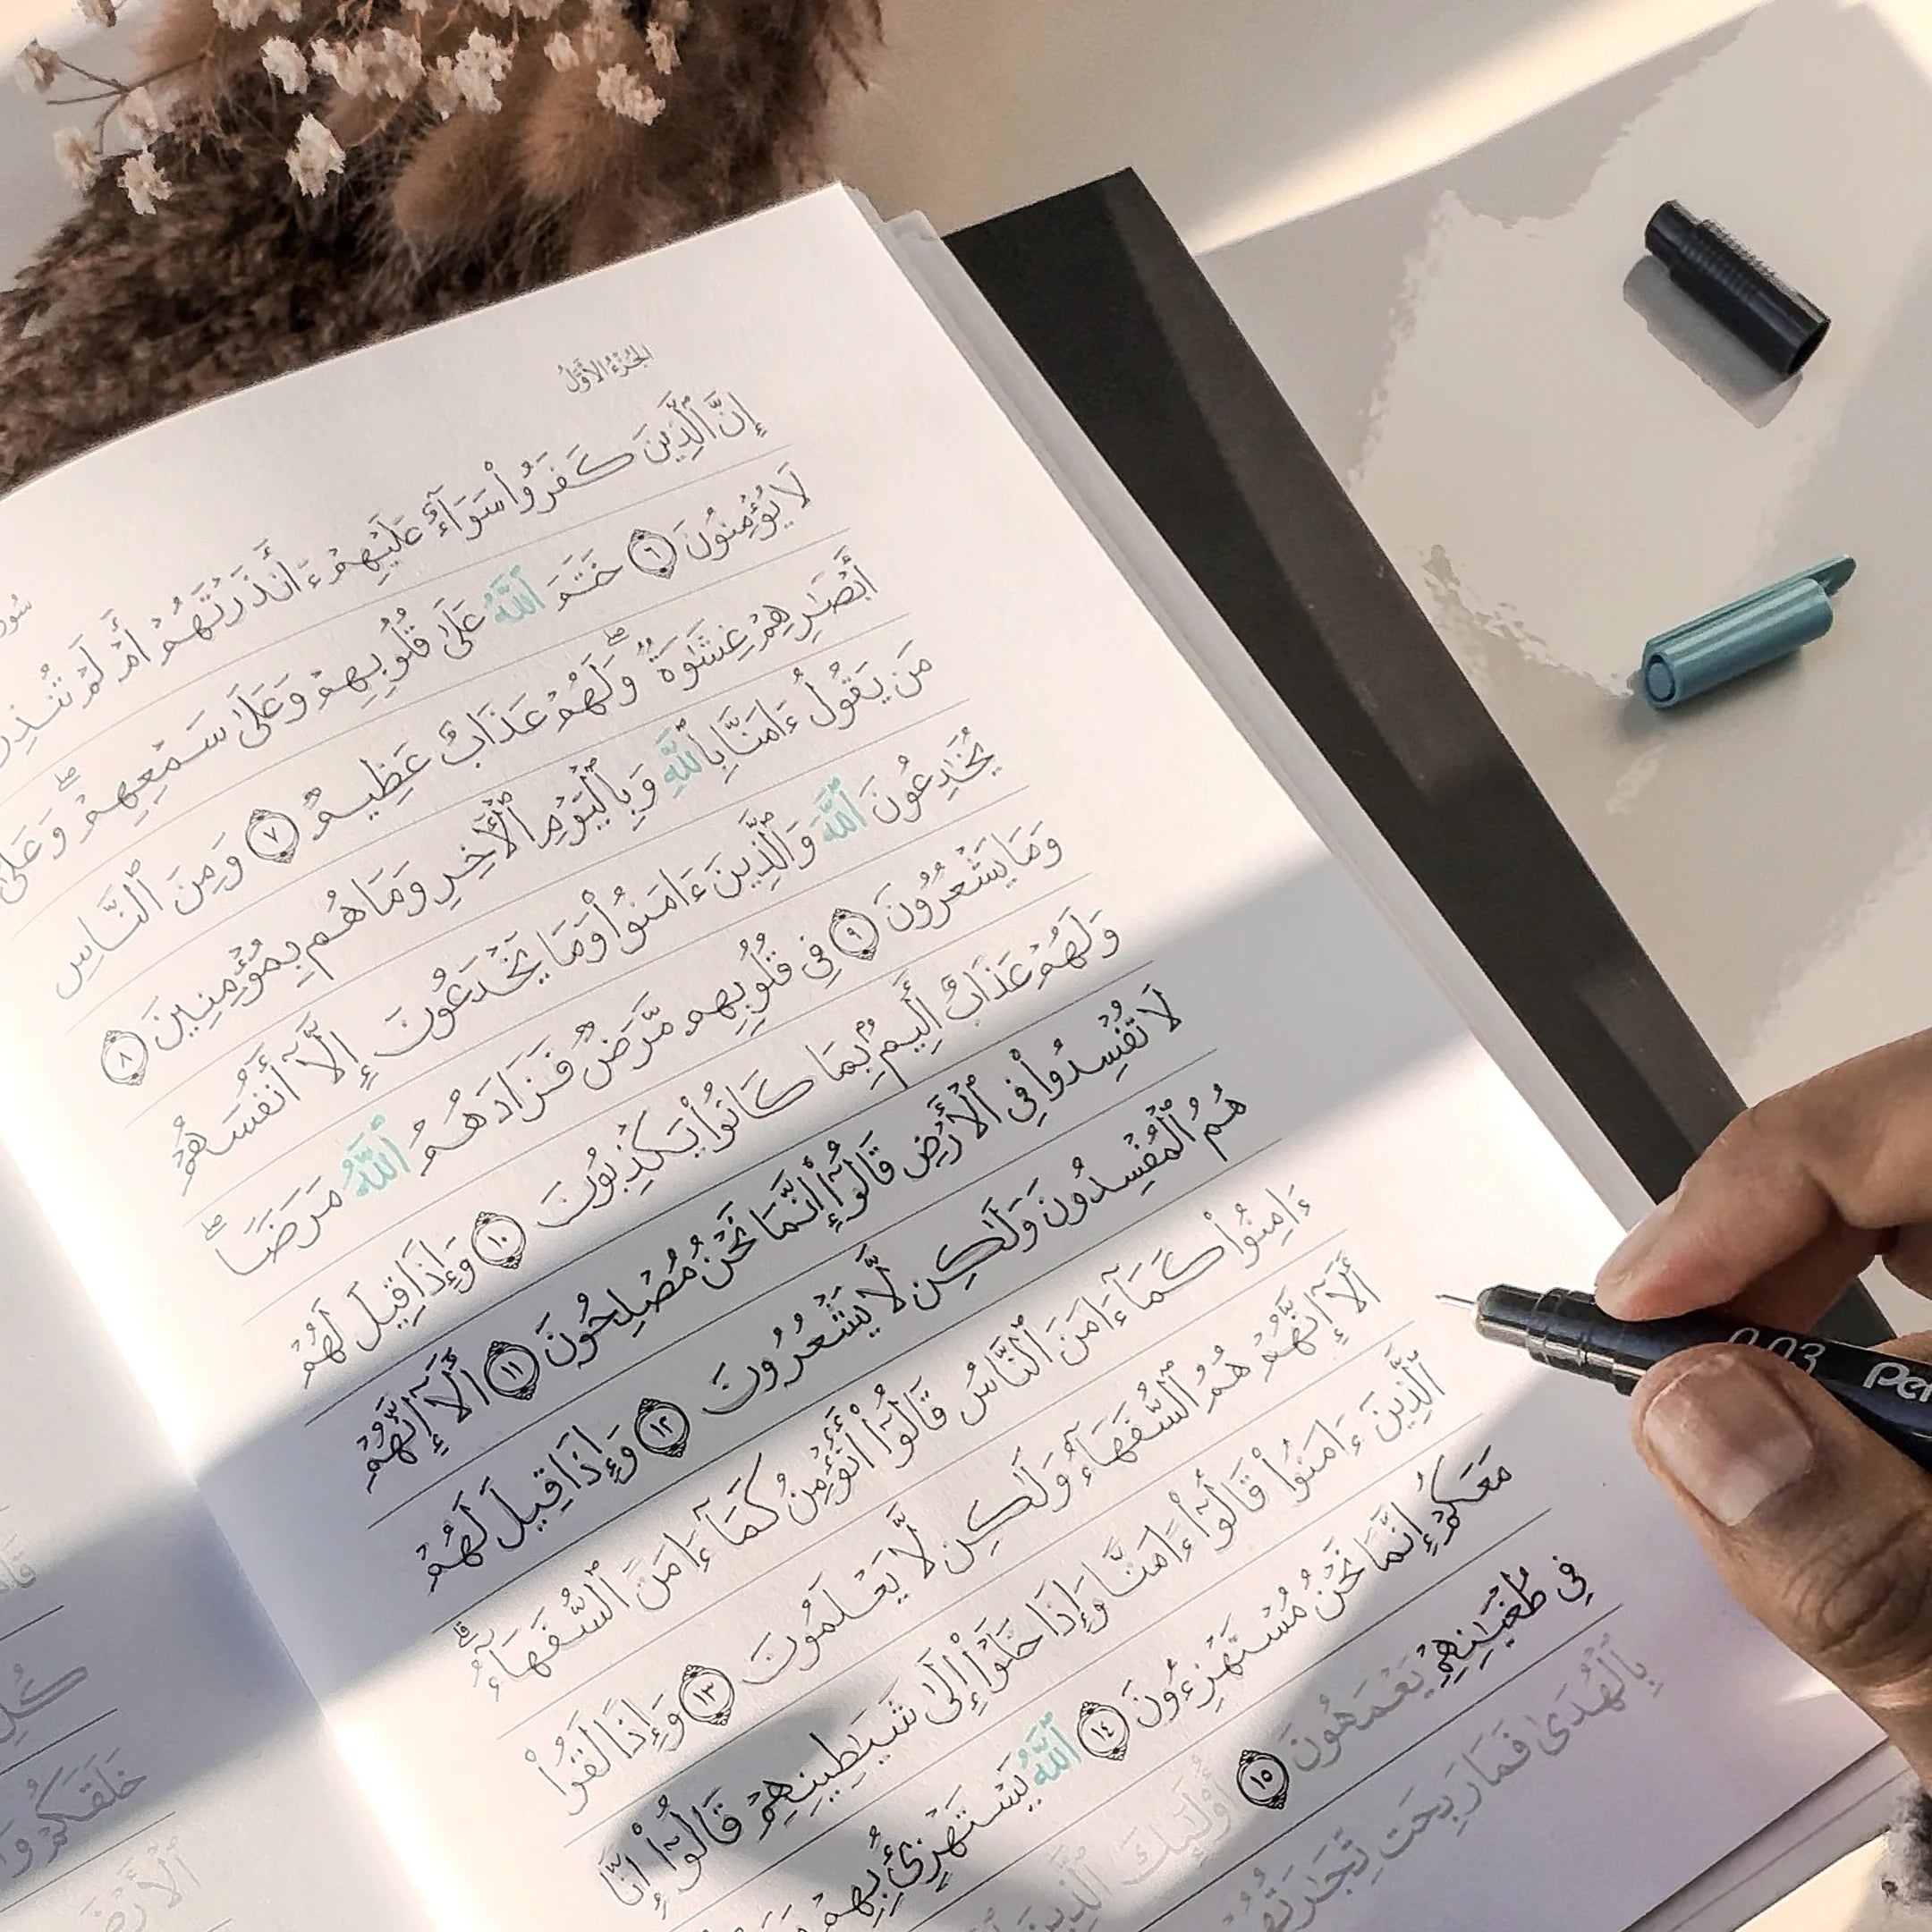 الجُزْءُ الأَوَّلُ
إِنَّ ٱلَّذِينَ كَفَرُواْ سَوَآءٌ عَلَيْهِمْ ءَأَنذَرْتَهُمْ أَمْ لَمْ تُنذِرْ
لَا يُؤْمِنُونَ ٦ خَتَمَ ٱللَّهُ عَلَىٰ قُلُوبِهِمْ وَعَلَىٰ سَمْعِهِمْۖ وَعَلَىٰ
أَبْصَٰرِهِمْ غِشَٰوَةٞۖ وَلَهُمْ عَذَابٌ عَظِيمٞ ٧ وَمِنَ ٱلنَّاسِ
مَن يَقُولُ ءَامَنَّا بِٱللَّهِ وَبِٱلْيَوْمِ ٱلْأٓخِرِ وَمَا هُم بِمُؤْمِنِينَ ٨
يُخَٰدِعُونَ ٱللَّهَ وَٱلَّذِينَ ءَامَنُواْ وَمَا يَخْدَعُونَ إِلَّآ أَنفُسَهُمْ
وَمَا يَشْعُرُونَ ٩ فِي قُلُوبِهِم مَّرَضٞ فَزَادَهُمُ ٱللَّهُ مَرَضٗاۖ
وَلَهُمْ عَذَابٌ أَلِيمُۢ بِمَا كَانُواْ يَكْذِبُونَ ١٠ وَإِذَا قِيلَ لَهُمْ
لَا تُفْسِدُواْ فِي ٱلْأَرْضِ قَالُوٓاْ إِنَّمَا نَحْنُ مُصْلِحُونَ ١١ أَلَآ إِنَّهُمْ
هُمُ ٱلْمُفْسِدُونَ وَلَٰكِن لَّا يَشْعُرُونَ ١٢ وَإِذَا قِيلَ لَهُمْ
ءَامِنُواْ كَمَآ ءَامَنَ ٱلنَّاسُ قَالُوٓاْ أَنُؤْمِنُ كَمَآ ءَامَنَ ٱلسُّفَهَآءُۗ
أَلَآ إِنَّهُمْ هُمُ ٱلسُّفَهَآءُ وَلَٰكِن لَّا يَعْلَمُونَ ١٣ وَإِذَا لَقُواْ
ٱلَّذِينَ ءَامَنُواْ قَالُوٓاْ ءَامَنَّا وَإِذَا خَلَوْاْ إِلَىٰ شَيَٰطِينِهِمْ قَالُوٓاْ إِنَّا
مَعَكُمْ إِنَّمَا نَحْنُ مُسْتَهْزِءُونَ ١٤ ٱللَّهُ يَسْتَهْزِئُ بِهِمْ
فِي طُغْيَٰنِهِمْ يَعْمَهُونَ ١٥ أُوْلَٰٓئِكَ ٱلَّذِينَ
بِٱلْهُدَىٰ فَمَا رَبِحَت تِّجَٰرَتُهُمْ
0.03